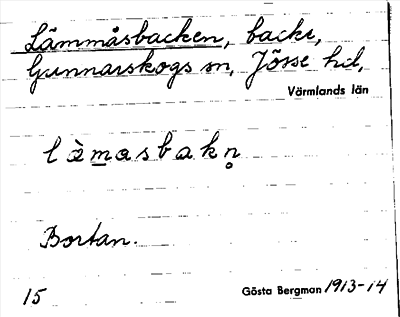 Lämmåsbacken, backe,
Gunnarskogs sn, Jösse hd,
Värmlands län
l ä̀ m a s b a k n̥
Bortan.
15
Gösta Bergman 1913-14